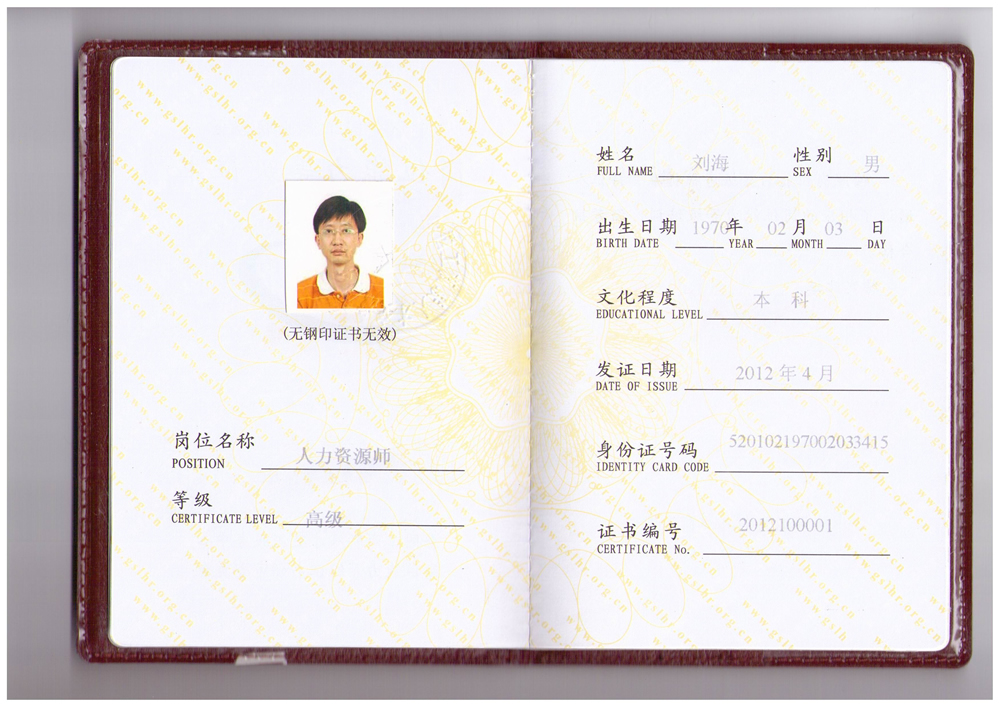 (无钢印证书无效)
岗位名称 人力资源师
POSITION
等级 高级
CERTIFICATE LEVEL
姓名 刘海 性别 男
FULL NAME SEX
出生日期 1970年 02月 03 日
BIRTH DATE YEAR MONTH DAY
文化程度 本 科
EDUCATIONAL LEVEL
发证日期 2012 年 4 月
DATE OF ISSUE
身份证号码 520102197002033415
IDENTITY CARD CODE
证书编号 2012100001
CERTIFICATE No.
www.gslhr.org.cn